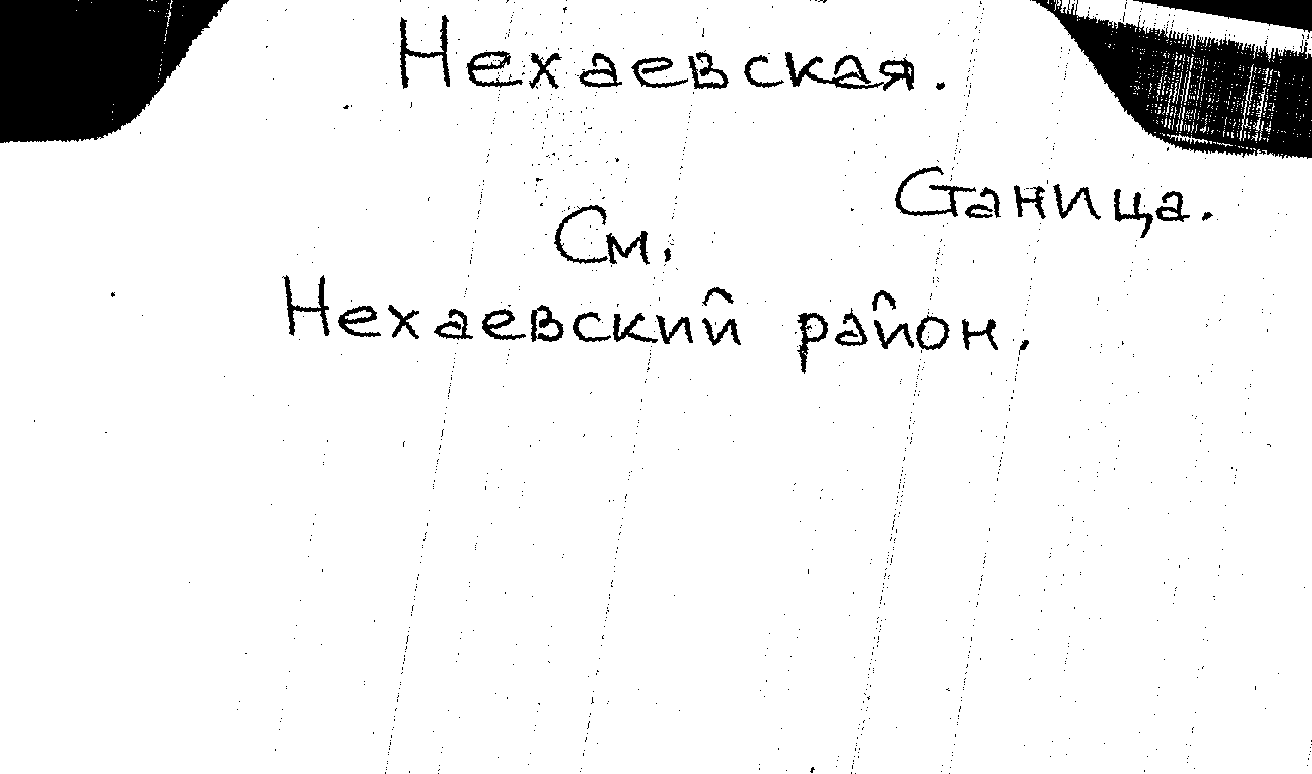 Нехаевская.
Станица.
См.
Нехаевский район.